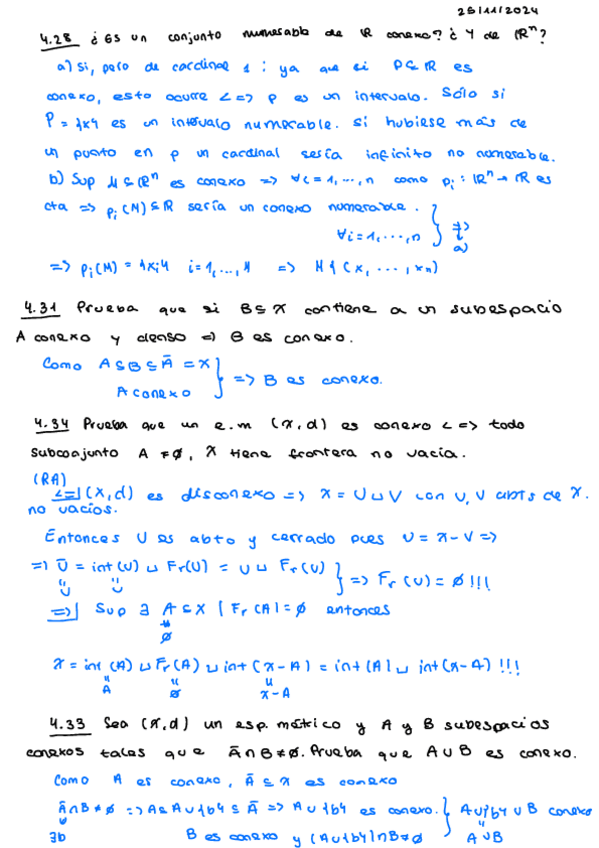 25/11/2024
4.28 ¿Es un conjunto numerable de ℝ conexo? ¿Y de ℝⁿ?
a) Si, pero de cardinal 1 : ya que si P⊆ℝ es
conexo, esto ocurre <=> P es un intervalo. Sólo si
P = {x} es un intervalo numerable. Si hubiese más de
un punto en P un cardinal sería infinito no numerable.
b) Sup M⊆ℝⁿ es conexo => ∀i=1,...,n como pᵢ: ℝⁿ→ℝ es
cta => pᵢ(M)⊆ℝ sería un conexo numerable.
∀i=1,...,n } => a)
=> pᵢ(M) = {xᵢ} i=1,...,n => M{(x,...,xₙ)
4.31 Prueba que si B⊆X contiene a un subespacio
A conexo y denso => B es conexo.
Como A⊆B⊆Ā = X
A conexo } => B es conexo.
4.34 Prueba que un e.m (X,d) es conexo <=> todo
subconjunto A ≠∅, X tiene frontera no vacía.
(RA)
<=| (X,d) es disconexo => X = U⊔V con U,V abts de X.
no vacíos.
Entonces U es abto y cerrado pues U = X-V =>
=> Ū = int(U) ⊔ Fr(U) = U ⊔ Fr(U) } => Fr(U) = ∅ !!!
" U " U
=>| Sup ∃ A⊆X | Fr(A)=∅ entonces
≠ ∅
X = int(A) ⊔ Fr(A) ⊔ int(X-A) = int(A) ⊔ int(X-A) !!!
" A " ∅ " X-A
4.33 Sea (X,d) un esp. métrico y A y B subespacios
conexos tales que Ā∩B≠∅. Prueba que A∪B es conexo.
Como A es conexo, Ā⊆X es conexo
Ā∩B≠∅ => A⊆A∪{b}⊆Ā => A∪{b} es conexo. } A∪{b}∪B conexo
∃b B es conexo y (A∪{b})∩B≠∅ } " A∪B